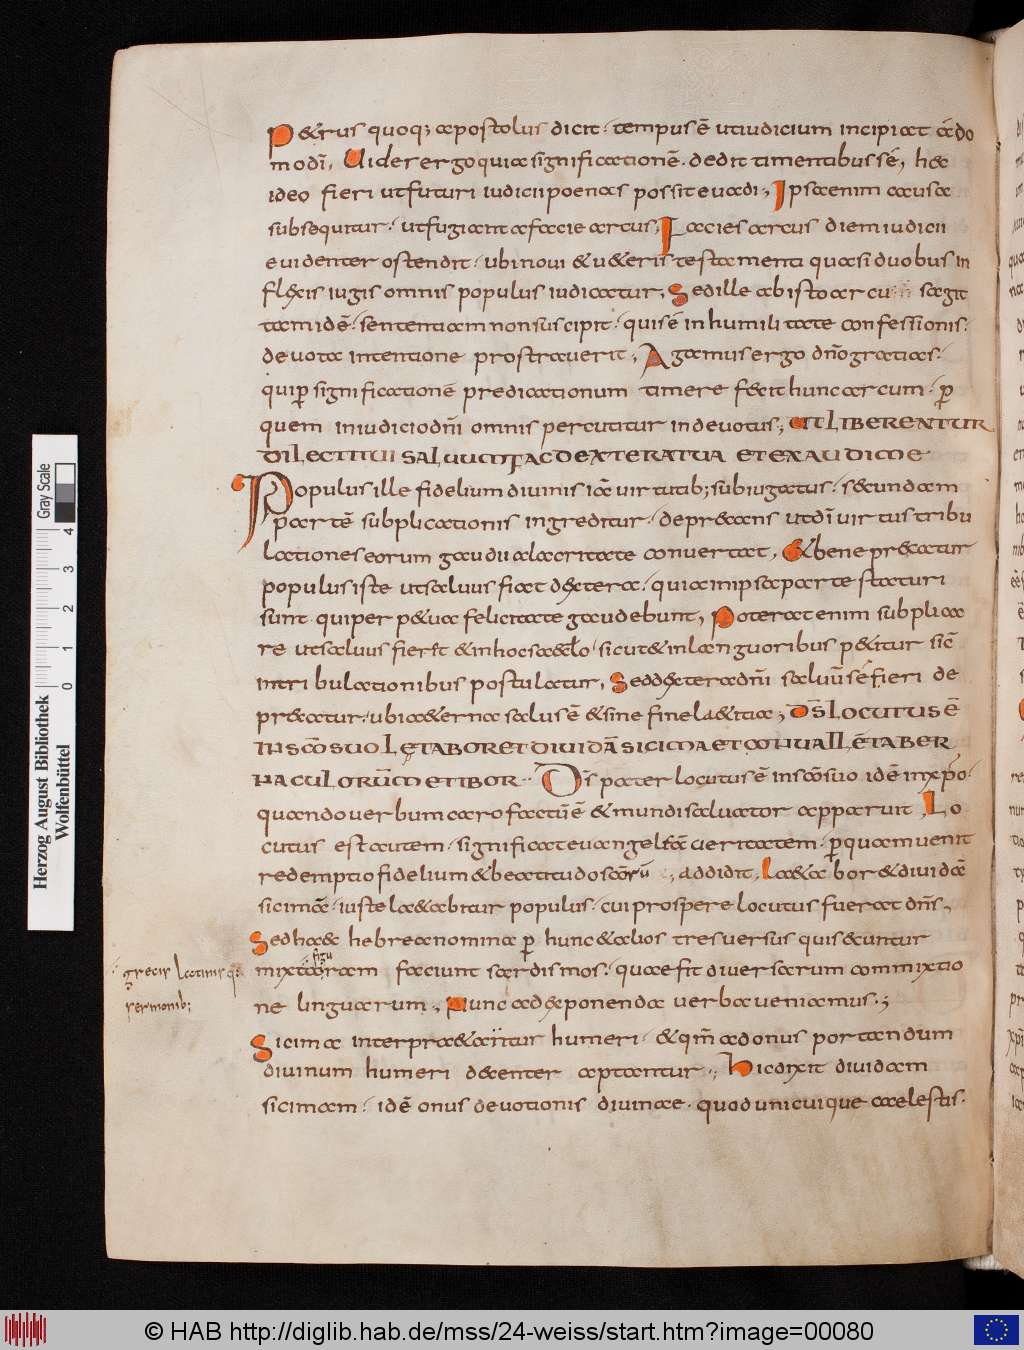 P&rus quoq; apostolus dicit· tempus ē ut iudicium incipiat a do
mo dī, Uider ergo qui a significationē· dedit timentibus sé, haec
ideo fieri ut futuri iudicii poenas possit euadi, Ipsa enim causa
subsequitur· ut fugiant a facie arcus, Facies arcus diem iudicii
euidenter ostendit· ubi noui & u&eris testamenti quasi duobus in
flexis iugis omnis populus iudicatur, Sed ille ab isto arcu sagit
tam idē· sententiam non suscipit· qui sé in humilitate confessionis·
deuota intentione prostrauerit, Agamus ergo dn̄o gratias·
qui p significationē predicationum timere fecit hunc arcum· p
quem in iudicio dn̄i omnis percutitur indeuotus; UT LIBERENTUR
DILECTI TUI SALUUM FAC DEXTERA TUA ET EXAUDI ME
Populus ille fidelium diuinis iā uirtutib; subiugatus· secundam
partē subplicationis ingreditur· deprecans ut dī uirtus tribu
lationes eorum gaudii alacritate conuertat, & bene precatur
populus iste ut saluus fiat dextera· quia in ipsa parte staturi
sunt· qui perp&ua felicitate gaudebunt, Poterat enim subplica
re ut saluus fierit & in hoc saeclo· sicut & in languoribus p&itur sic
in tribulationibus postulatur, Sed dextera dn̄i saluū sé fieri de
precatur· ubi a&erna salus ē & sine fine la&itia; DS̄ LOCUTUS Ē
IN SCŌ SUO LĘTABOR ET DIUIDĀ SICIMA ET CONUALLĒ TABER
NACULORŪ METIBOR· Ds̄ pater locutus ē in scō suo idē in xpō·
quando uerbum caro factū ē & mundi saluator apparuit, Lo
cutus est autem· significat euangelicā ueritatem· p quam uenit
redemptio fidelium & beatitudo scōrū, addidit, La&abor & diuidā
sicimā· iuste la&abitur populus· cui prospere locutus fuerat dn̄s,
Sed haec hebrea nomina p hunc & alios tres uersus qui secuntur
figu
mixta ram faciunt sardismos· quae fit diuersarum commixtio
grecis latinisq:
sermonib;
ne linguarum, Nunc ad exponenda uerba ueniamus;
Sicima interpra&atur humeri· & qm̄ ad onus portandum
diuinum humeri decenter aptantur; Hic dixit diuidam
sicimam· idē onus deuotionis diuinae· quod unicuique caelestis·
Herzog August Bibliothek
Wolfenbüttel
Gray Scale
0 1 2 3 4
© HAB http://diglib.hab.de/mss/24-weiss/start.htm?image=00080